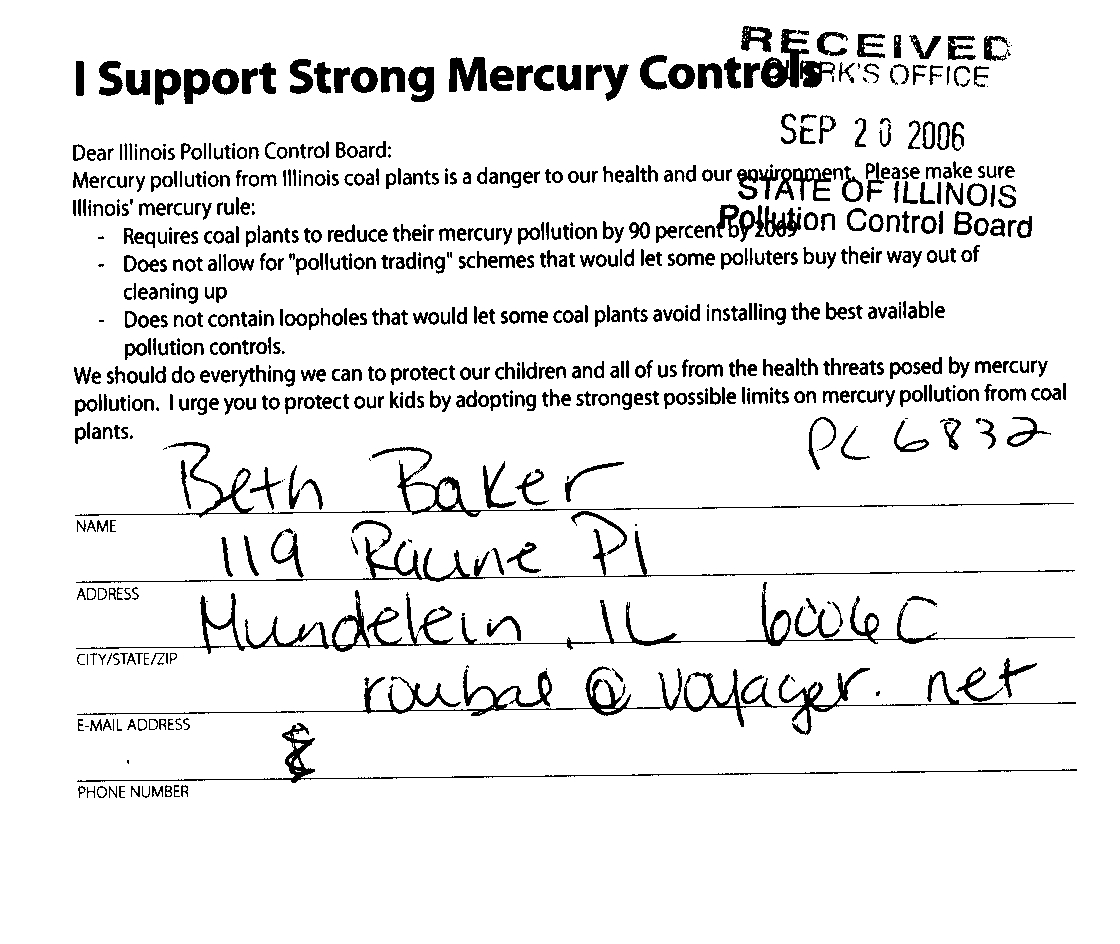 RECEIVED
CLERK'S OFFICE
I Support Strong Mercury Controls
SEP 20 2006
STATE OF ILLINOIS
Pollution Control Board
Dear Illinois Pollution Control Board:
Mercury pollution from Illinois coal plants is a danger to our health and our environment. Please make sure
Illinois' mercury rule:
- Requires coal plants to reduce their mercury pollution by 90 percent by 2009
- Does not allow for "pollution trading" schemes that would let some polluters buy their way out of
cleaning up
- Does not contain loopholes that would let some coal plants avoid installing the best available
pollution controls.
We should do everything we can to protect our children and all of us from the health threats posed by mercury
pollution. I urge you to protect our kids by adopting the strongest possible limits on mercury pollution from coal
plants.
PC 6832
Beth Baker
NAME
119 Raune Pl
ADDRESS
Mundelein, IL 60060
CITY/STATE/ZIP
roubal@voyager.net
E-MAIL ADDRESS
PHONE NUMBER